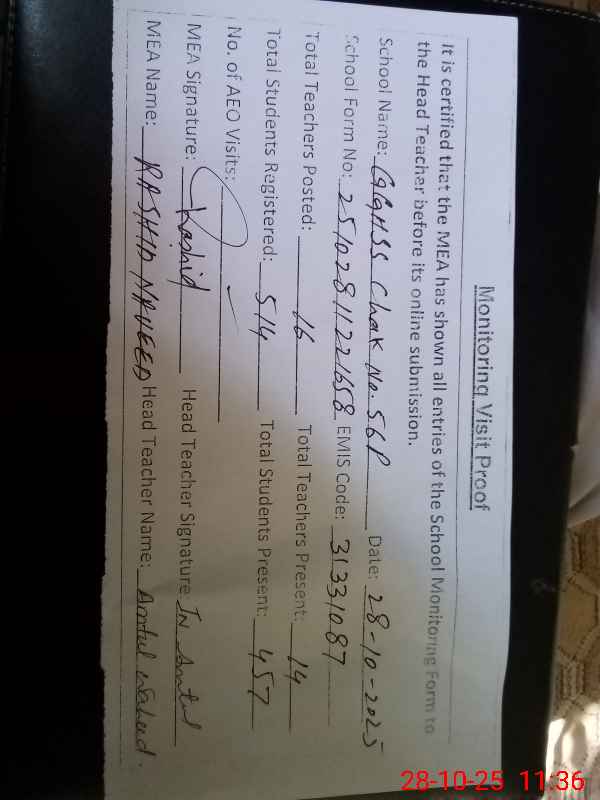 Monitoring Visit Proof
It is certified that the MEA has shown all entries of the School Monitoring Form to
the Head Teacher before its online submission.
School Name: GGHSS Chak No. 56P Date: 28-10-2025
School Form No: 25102811221658 EMIS Code: 31331087
Total Teachers Posted: 16 Total Teachers Present: 14
Total Students Registered: 514 Total Students Present: 457
No. of AEO Visits: ✓
MEA Signature: Rashid Head Teacher Signature:
MEA Name: RASHID NAVEED Head Teacher Name: Amtul Waheed.
28-10-25 11:36